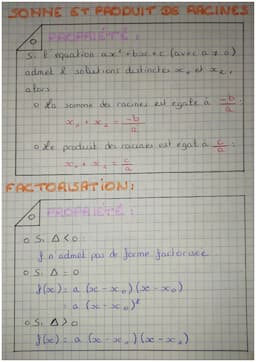 SOMME ET PRODUIT DE RACINES
PROPRIÉTÉ :
Si l'équation ax² + bx + c (avec a ≠ 0)
admet 2 solutions distinctes x₁ et x₂,
alors
o La somme des racines est egale à -b/a :
x₁ + x₂ = -b/a
o Le produit des racines est egal à c/a :
x₁ × x₂ = c/a
FACTORISATION :
PROPRIÉTÉ :
o Si Δ < 0
f n'admet pas de forme factorisée
o Si Δ = 0
f(x) = a (x - x₀) (x - x₀)
= a (x - x₀)²
o Si Δ > 0
f(x) = a (x - x₁) (x - x₂)